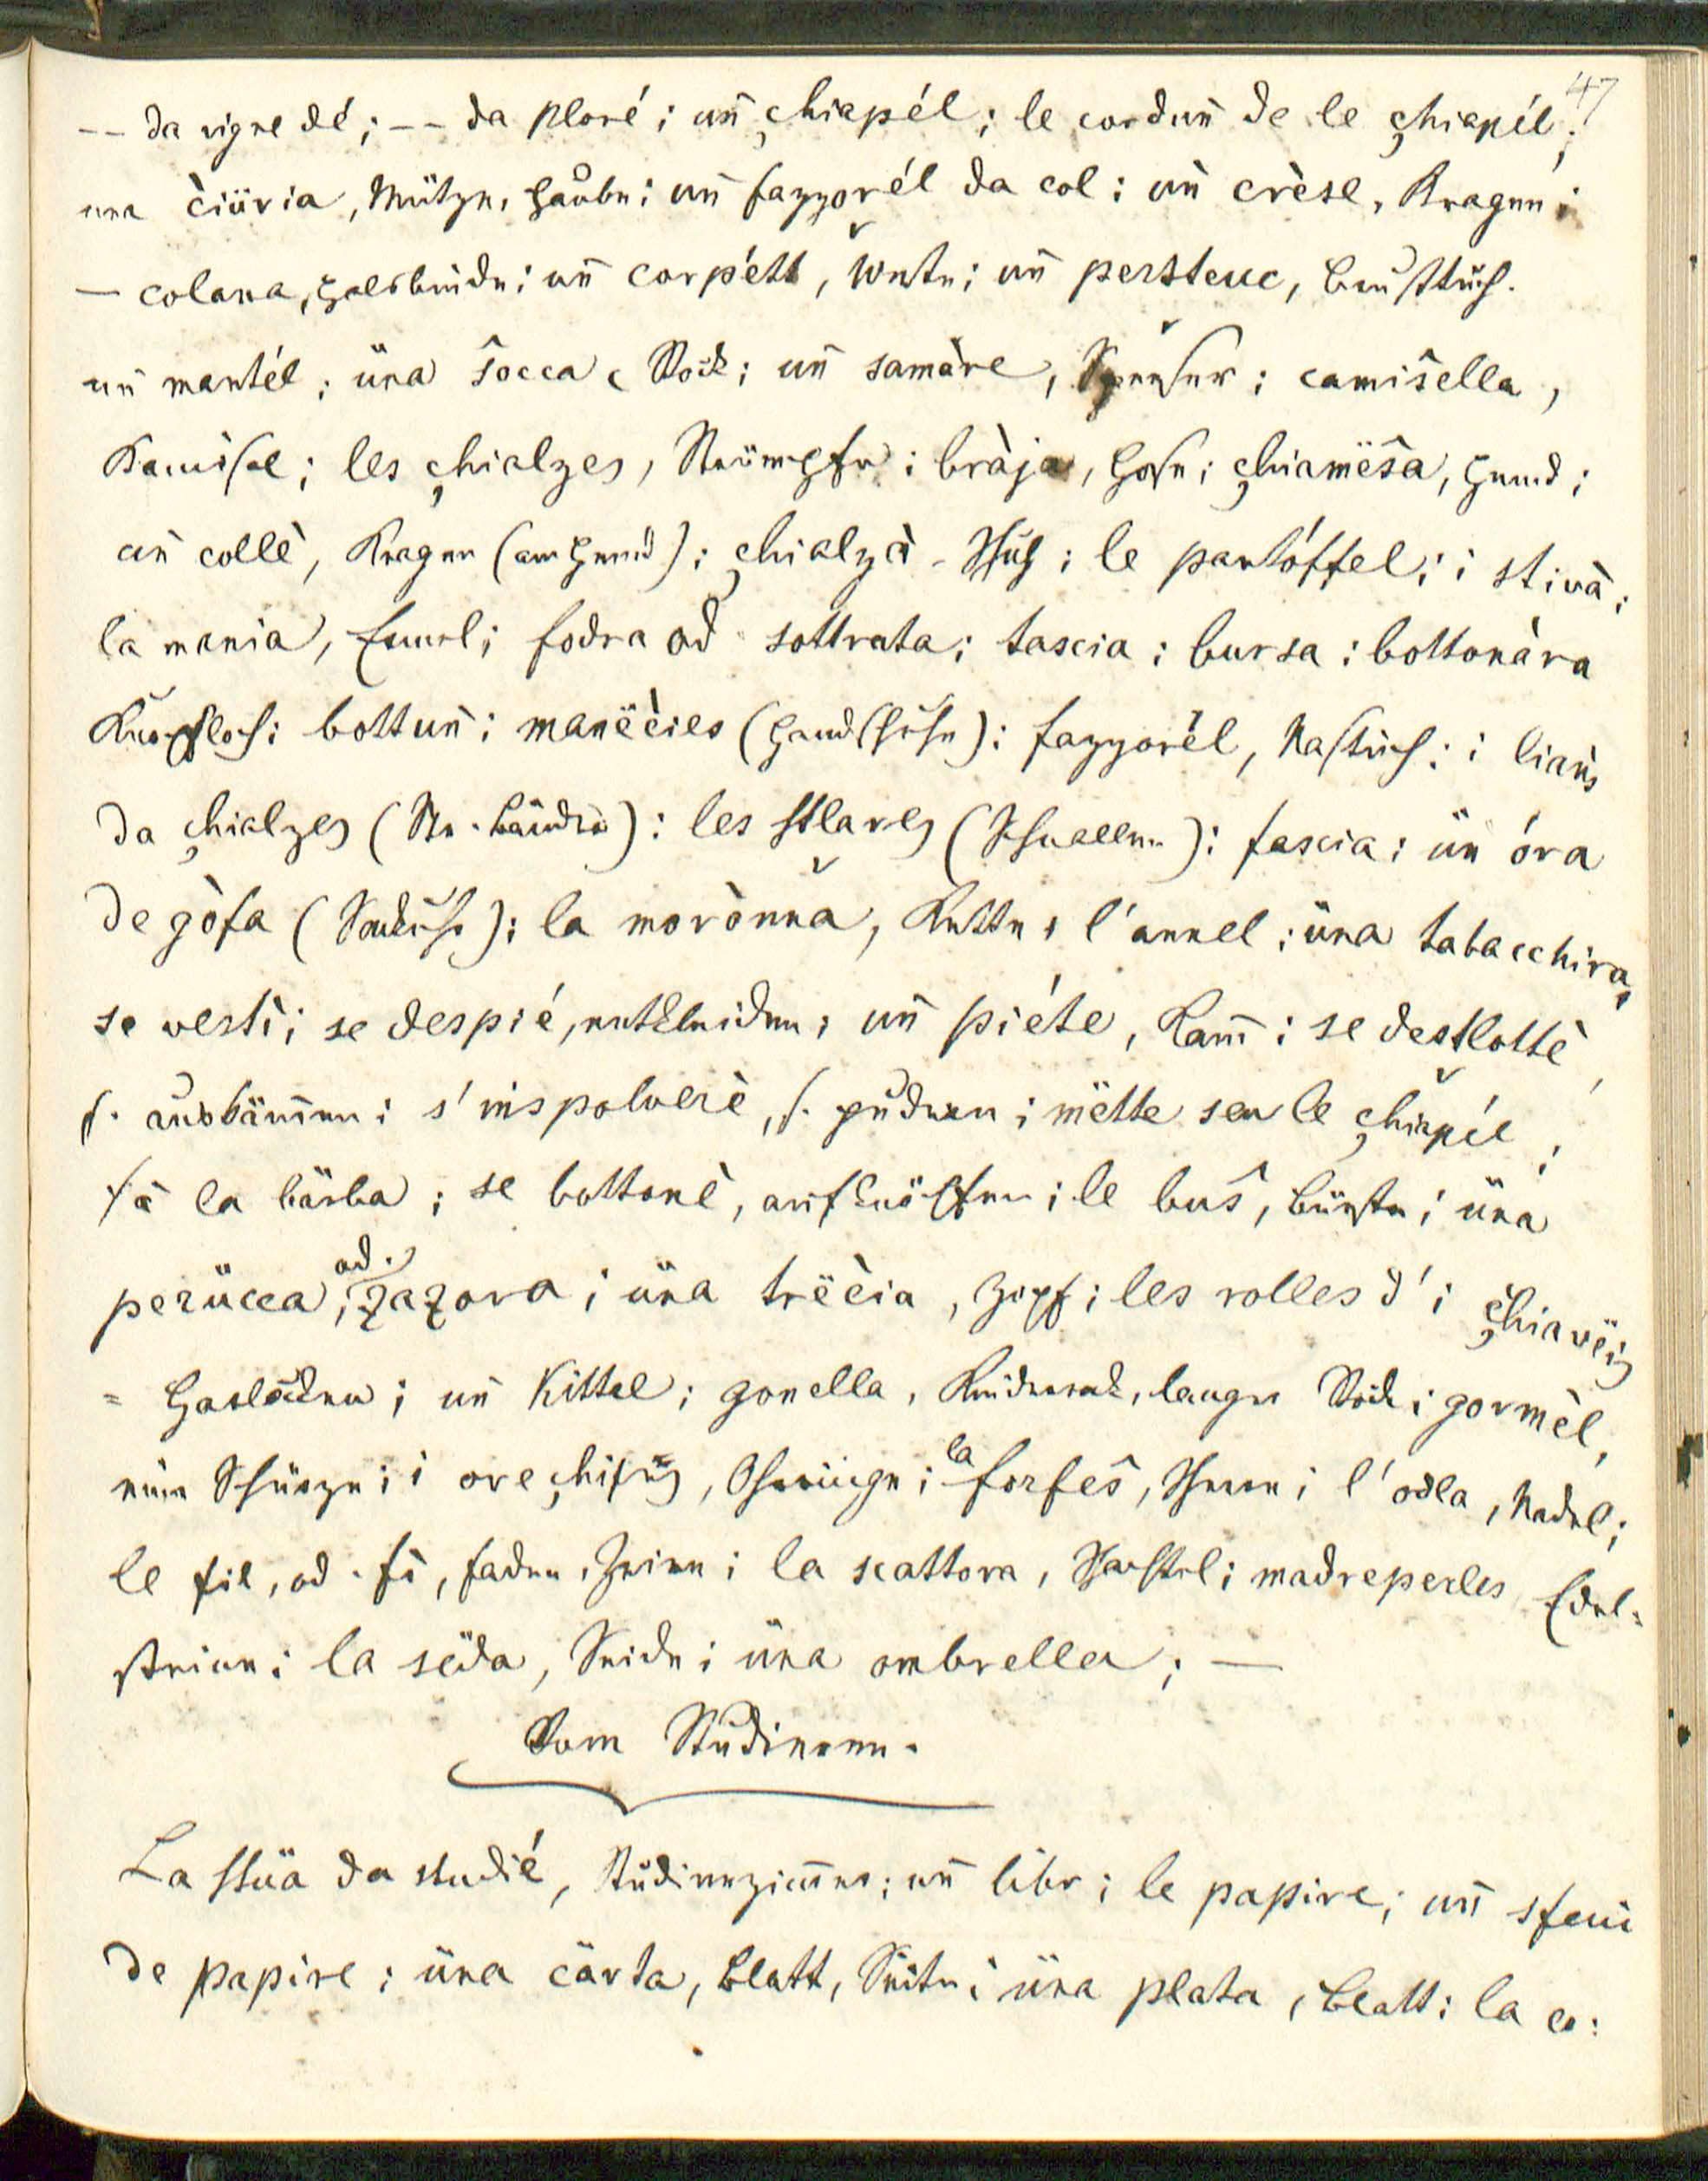 47
-- da vigne dé; -- da ploré; uñ çhiapél; le corduñ de le çhiapél;
una ċiüria, Mütze, Haube; uñ fazzorél da col; uñ crèse, Kragen;
— colana, Halsbinde; uñ corpétt, Weste; uñ persteuc, Brusttuch.
uñ mantél; üna ŝocca, Rock; uñ samàre, Spenser; camiŝella,
Kamisol; les çhialzes, Strümpfe; bràja, Hose; çhiamëŝa, Hemd;
uñ collè, Kragen (am Hemd); çhialzà - Schuh; le pantóffel; i stivà;
la mania, Ermel; fodra od sottrata; tascia; bursa; bottonàra
Knopfloch; bottuñ; manëċies (Handschuhe); fazzorèl, Nastuch; i liañs
da çhialzes (Str. bänder); les stlares (Schnallen); fascia; üñ óra
de gòfa (Sackuhr); la morònna, Kette, l'annel; üna tabacchira,
se vestì; se despié, entkleiden; uñ piéte, Kam̄; se destlottè,
s. auskäm̄en; s'inspolverè, s. pudern; mëtte seu le çhiapél;
fà la bärba; se bottonè, aufknöpfen; le buŝ, Bürste; üna
perücca, od. zazora; üna trëċia, Zopf; les rolles d'i çhiavëis
= Harlocken; uñ Kittel; gonella, Kinderrock, langer Rock; gormèl,
ein Schürze; i oreçhiñs, Ohrringe; la forfeŝ, Schere; l'odla, Nadel;
le fil, od. fì, Faden, Zwirn; la scattora, Schachtel; madreperles, Edel:
steine; la sëda, Seide; üna ombrella; —
Vom Studieren.
La stüa da studié, Studierzim̄er; uñ libr; le papire; uñ sfeui
de papire; üna cärta, Blatt, Seite; üna plata, Blatt; la co: